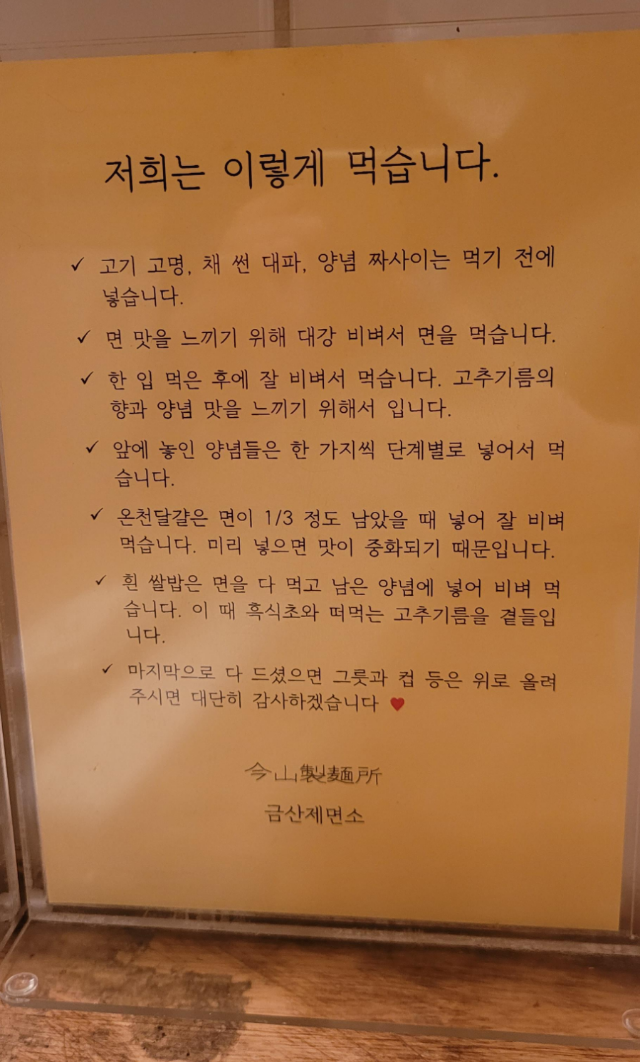 저희는 이렇게 먹습니다.
✓ 고기 고명, 채 썬 대파, 양념 짜사이는 먹기 전에
넣습니다.
✓ 면 맛을 느끼기 위해 대강 비벼서 면을 먹습니다.
✓ 한 입 먹은 후에 잘 비벼서 먹습니다. 고추기름의
향과 양념 맛을 느끼기 위해서 입니다.
✓ 앞에 놓인 양념들은 한 가지씩 단계별로 넣어서 먹
습니다.
✓ 온천달걀은 면이 1/3 정도 남았을 때 넣어 잘 비벼
먹습니다. 미리 넣으면 맛이 중화되기 때문입니다.
✓ 흰 쌀밥은 면을 다 먹고 남은 양념에 넣어 비벼 먹
습니다. 이 때 흑식초와 떠먹는 고추기름을 곁들입
니다.
✓ 마지막으로 다 드셨으면 그릇과 컵 등은 위로 올려
주시면 대단히 감사하겠습니다 ♥
今山製麵所
금산제면소